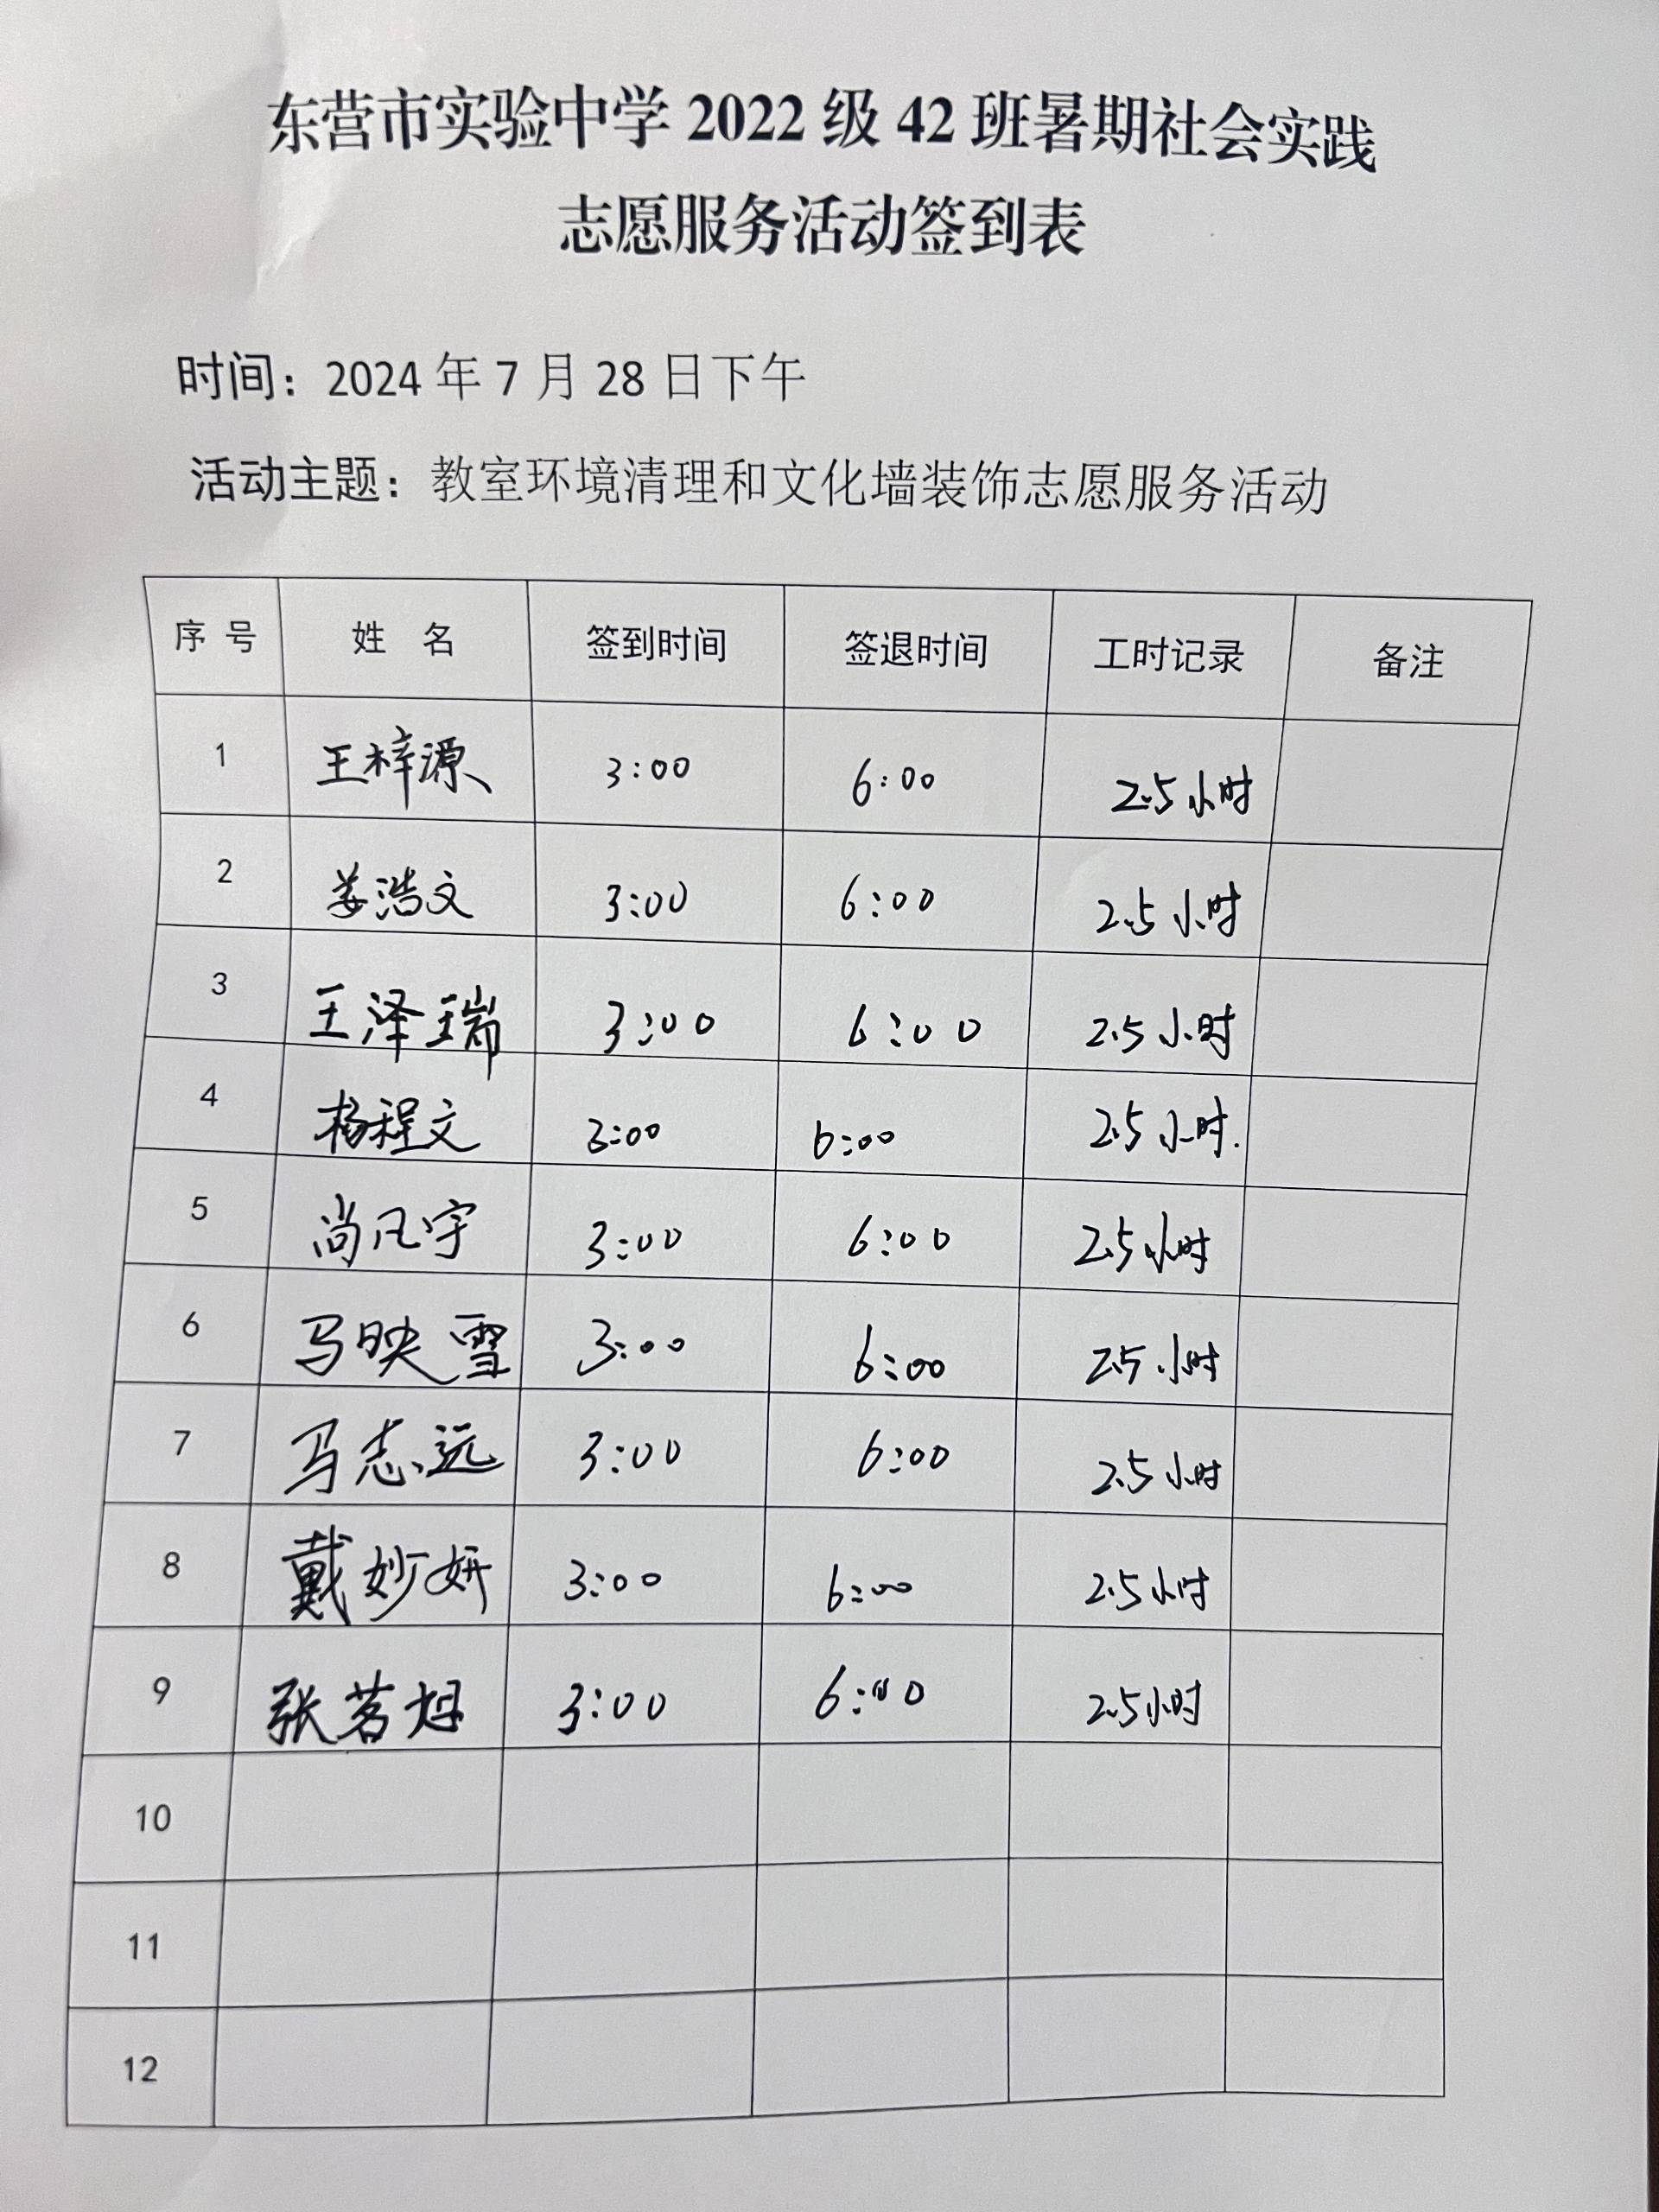 东营市实验中学 2022 级 42 班暑期社会实践
志愿服务活动签到表
时间：2024 年 7 月 28 日下午
活动主题：教室环境清理和文化墙装饰志愿服务活动
序 号 姓 名 签到时间 签退时间 工时记录 备注
1 王梓源 3:00 6:00 2.5小时
2 姜浩文 3:00 6:00 2.5小时
3 王泽瑞 3:00 6:00 2.5小时
4 杨程文 3:00 6:00 2.5小时.
5 尚凡宇 3:00 6:00 2.5小时
6 马映雪 3:00 6:00 2.5小时
7 马志远 3:00 6:00 2.5小时
8 戴妙妍 3:00 6:00 2.5小时
9 张茗 3:00 6:00 2.5小时
10
11
12